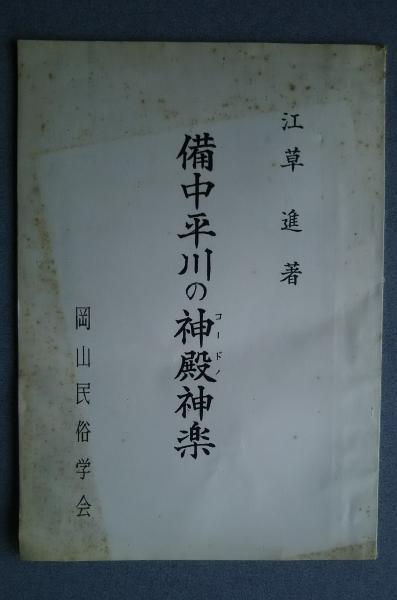 江草 進 著
備中平川の神殿神楽
コードノ
岡山民俗学会